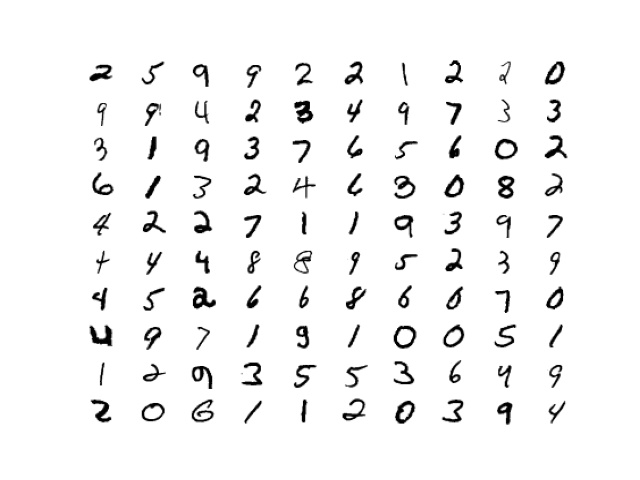 2 5 9 9 2 2 1 2 2 0
9 9 4 2 3 4 9 7 3 3
3 1 9 3 7 6 5 6 0 2
6 1 3 2 4 6 3 0 8 2
4 2 2 7 1 1 9 3 9 7
4 4 4 8 8 9 5 2 3 9
4 5 2 6 6 8 6 6 7 0
4 9 7 1 9 1 0 0 5 1
1 2 9 3 5 5 3 6 4 9
2 0 6 1 1 2 0 3 9 4